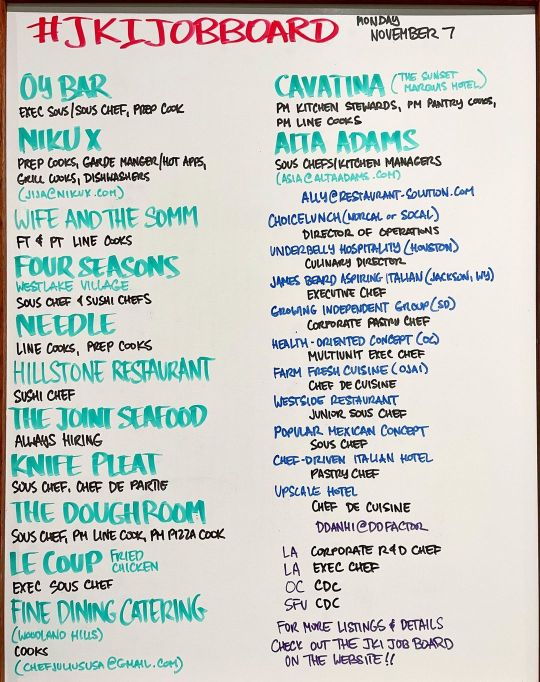 #JKIJOBBOARD
MONDAY
NOVEMBER 7
OY BAR
EXEC SOUS/SOUS CHEF, PREP COOK
NIKU X
PREP COOKS, GARDE MANGER/HOT APPS,
GRILL COOKS, DISHWASHERS
(JIJA@NIKUX.COM)
WIFE AND THE SOMM
FT & PT LINE COOKS
FOUR SEASONS
WESTLAKE VILLAGE
SOUS CHEF & SUSHI CHEFS
NEEDLE
LINE COOKS, PREP COOKS
HILLSTONE RESTAURANT
SUSHI CHEF
THE JOINT SEAFOOD
ALWAYS HIRING
KNIFE PLEAT
SOUS CHEF, CHEF DE PARTIE
THE DOUGHROOM
SOUS CHEF, PM LINE COOK, PM PIZZA COOK
LE COUP FRIED
CHICKEN
EXEC SOUS CHEF
FINE DINING CATERING
(WOODLAND HILLS)
COOKS
(CHEFJULIUSUSA@GMAIL.COM)
CAVATINA (THE SUNSET
MARQUIS HOTEL)
PM KITCHEN STEWARDS, PM PANTRY COOKS,
PM LINE COOKS
ALTA ADAMS
SOUS CHEFS/KITCHEN MANAGERS
(ASIA@ALTAADAMS.COM)
ALLY@RESTAURANT-SOLUTION.COM
CHOICELUNCH (NORCAL OR SOCAL)
DIRECTOR OF OPERATIONS
UNDERBELLY HOSPITALITY (HOUSTON)
CULINARY DIRECTOR
JAMES BEARD ASPIRING ITALIAN (JACKSON, WY)
EXECUTIVE CHEF
GROWING INDEPENDENT GROUP (SD)
CORPORATE PASTRY CHEF
HEALTH-ORIENTED CONCEPT (OC)
MULTIUNIT EXEC CHEF
FARM FRESH CUISINE (OJAI)
CHEF DE CUISINE
WESTSIDE RESTAURANT
JUNIOR SOUS CHEF
POPULAR MEXICAN CONCEPT
SOUS CHEF
CHEF-DRIVEN ITALIAN HOTEL
PASTRY CHEF
UPSCALE HOTEL
CHEF DE CUISINE
DDANHI@DDFACTOR
LA CORPORATE R&D CHEF
LA EXEC CHEF
OC CDC
SFV CDC
FOR MORE LISTINGS & DETAILS
CHECK OUT THE JKI JOB BOARD
ON THE WEBSITE!!